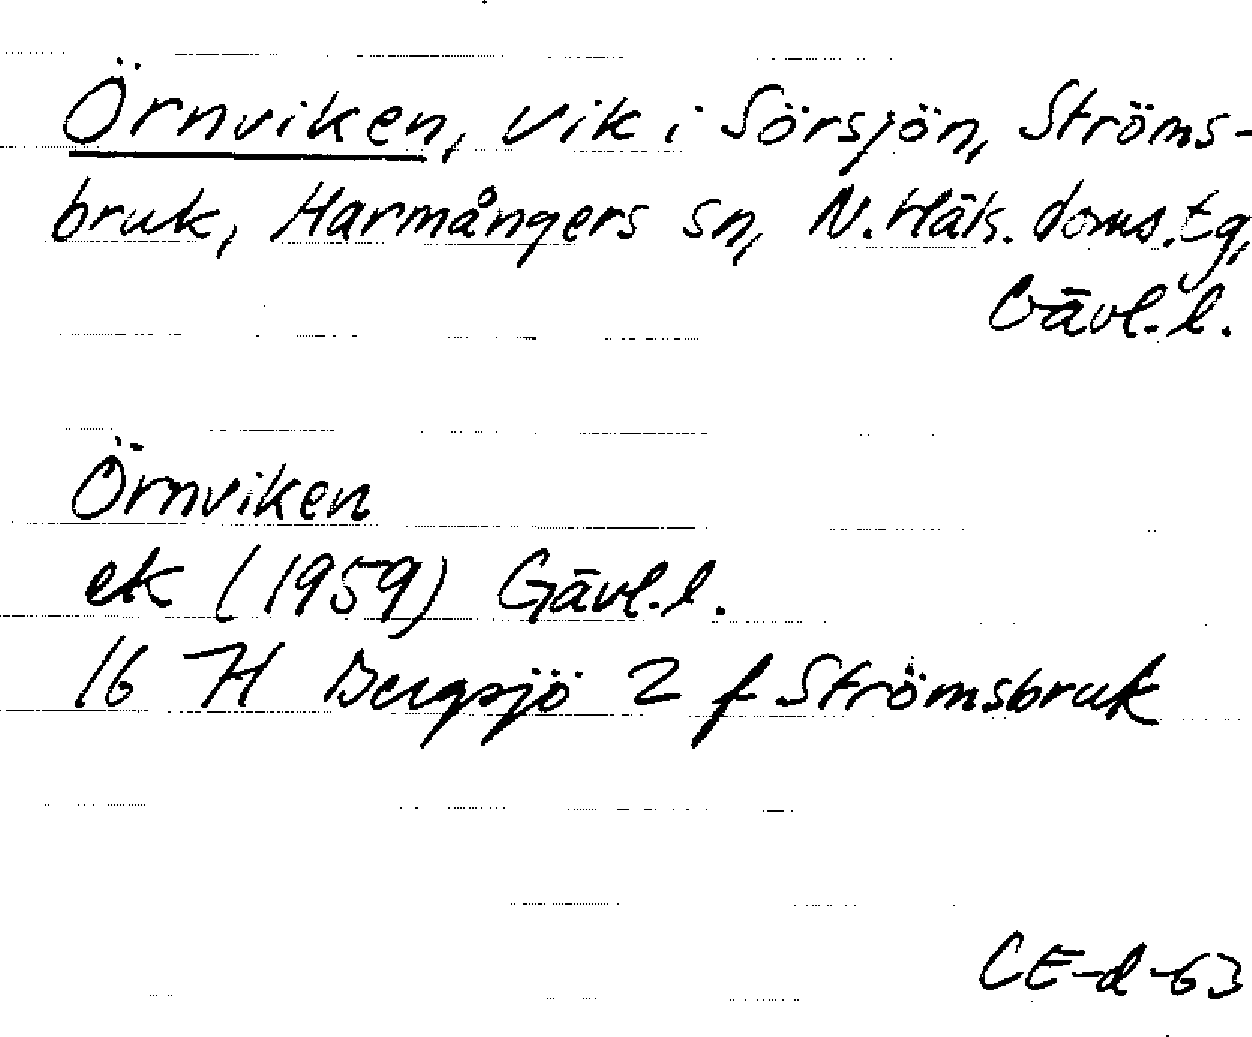 Örnviken, vik i Sörsjön, Ströms-
bruk, Harmångers sn, N. Häls. doms. tg,
Gävl. l.
Örnviken
ek (1959) Gävl. l.
16 H Bergsjö 2 f Strömsbruk
CE-d-63